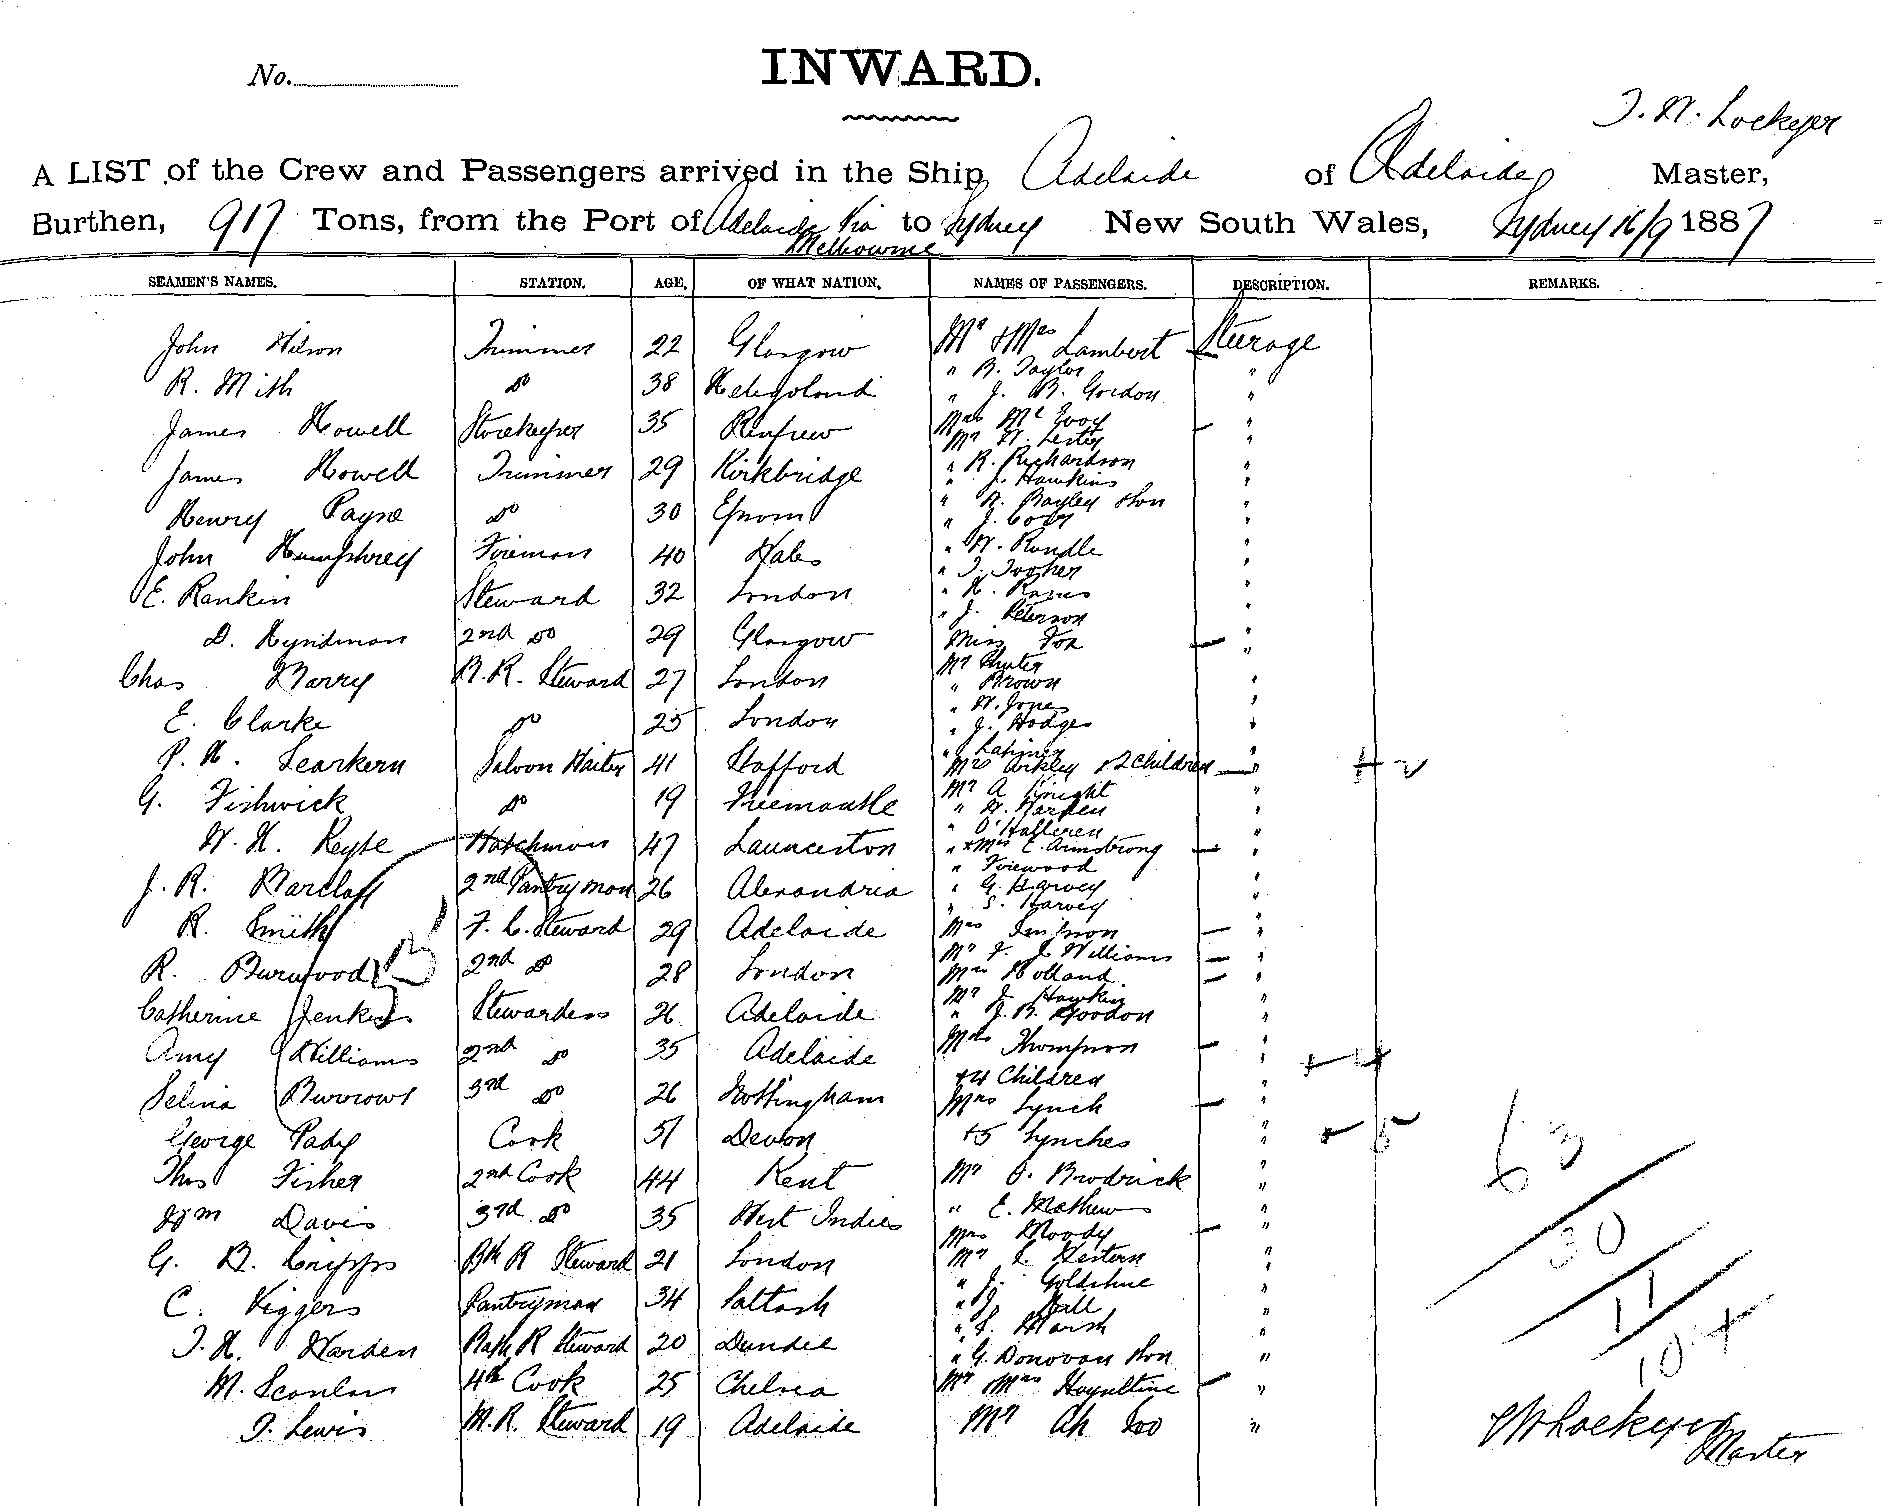 No.
INWARD.
T. N. Lockyer
A LIST of the Crew and Passengers arrived in the Ship Adelaide of Adelaide Master,
Burthen, 917 Tons, from the Port of Adelaide Via Melbourne to Sydney New South Wales, Sydney 16/9 1887
SEAMEN'S NAMES. STATION. AGE. OF WHAT NATION. NAMES OF PASSENGERS. DESCRIPTION. REMARKS.
John Wilson Trimmer 22 Glasgow Mr & Mrs Lambert Steerage
" B. Taylor "
R. Mith do 38 Heligoland " J. B. Gordon "
James Howell Storekeeper 35 Renfrew Mrs Mc Evoy "
Mr W. Lester "
James Howell Trimmer 29 Kirkbridge " R. Richardson "
" J. Hawkins "
Henry Payne do 30 Epsom " W. Bagley & Son "
" J. Cody "
John Humphrey Fireman 40 Wales " W. Rundle "
" T. Tooher "
E. Rankin Steward 32 London "
" J. Peterson "
D. Hyndman 2nd do 29 Glasgow Miss Fox "
Mr Hunter
Chas Barry B.R. Steward 27 London " Brown "
" W. Jones "
E. Clarke do 25 London " J. Hodges "
" Latimer
P. H. Searkern Saloon Waiter 41 Stafford Mrs Arkley & 2 Children " + 2
Mr A Knight "
G. Fishwick do 19 Freemantle " W. Warden "
" O'Halleren "
W. H. Keyte Watchman 47 Launceston " & Mrs E. Armstrong "
" Firewood "
J. R. Barclay 2nd Pantryman 26 Alexandria " G. Harvey "
" S. Harvey "
R. Smith F. C. Steward 29 Adelaide Mrs Simpson "
Mr F. J. Williams "
R. Burwood 2nd do 28 London Mrs Holland "
Mr J. Hawkin "
Catherine Jenkins Stewardess 26 Adelaide " J. B. Goodon "
Amy Williams 2nd do 35 Adelaide Mrs Thompson "
+4 Children " + 4
Selina Burrows 3rd do 26 Nottingham Mrs Lynch "
George Pady Cook 51 Devon +5 Lynches " + 5
Thos Fisher 2nd Cook 44 Kent Mr O. Brodrick "
Wm Davis 3rd do 35 West Indies " E. Mathews "
Mrs Moody "
G. B. Cripps Bth R Steward 21 London Mr L. Western "
" J. Goldshue "
C. Viggers Pantryman 34 Saltash " J. Hall "
" S. Marsh "
T. H. Warden Bath R Steward 20 Dundee " G. Donovan & Son "
M. Scanlan 4th Cook 25 Chelsea Mr & Mrs Haysltine "
T. Lewis M.R. Steward 19 Adelaide Mr Ah Loo "
63
30
11
104
T N Lockyer
Master